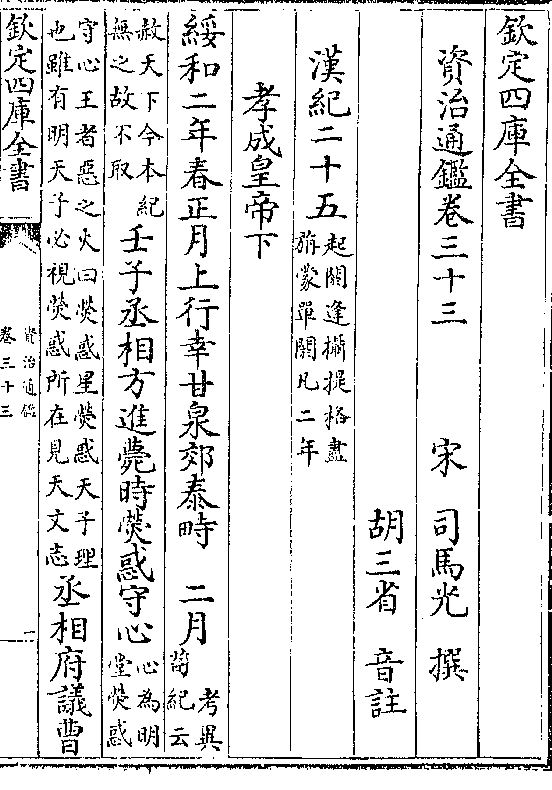 欽定四庫全書
資治通鑑卷三十三
宋 司馬光 撰
胡三省 音註
漢紀二十五
起閼逢攝提格盡
旃蒙單閼凡二年
孝成皇帝下
綏和二年春正月上行幸甘泉郊泰畤 二月
考異
荀紀云
赦天下今本紀
無之故不取
壬子丞相方進薨時熒惑守心
心為明
堂熒惑
守心王者惡之火曰熒惑星熒惑天子理
也雖有明天子必視熒惑所在見天文志
丞相府議曹
欽定四庫全書
資治通鑑
卷三十三
一